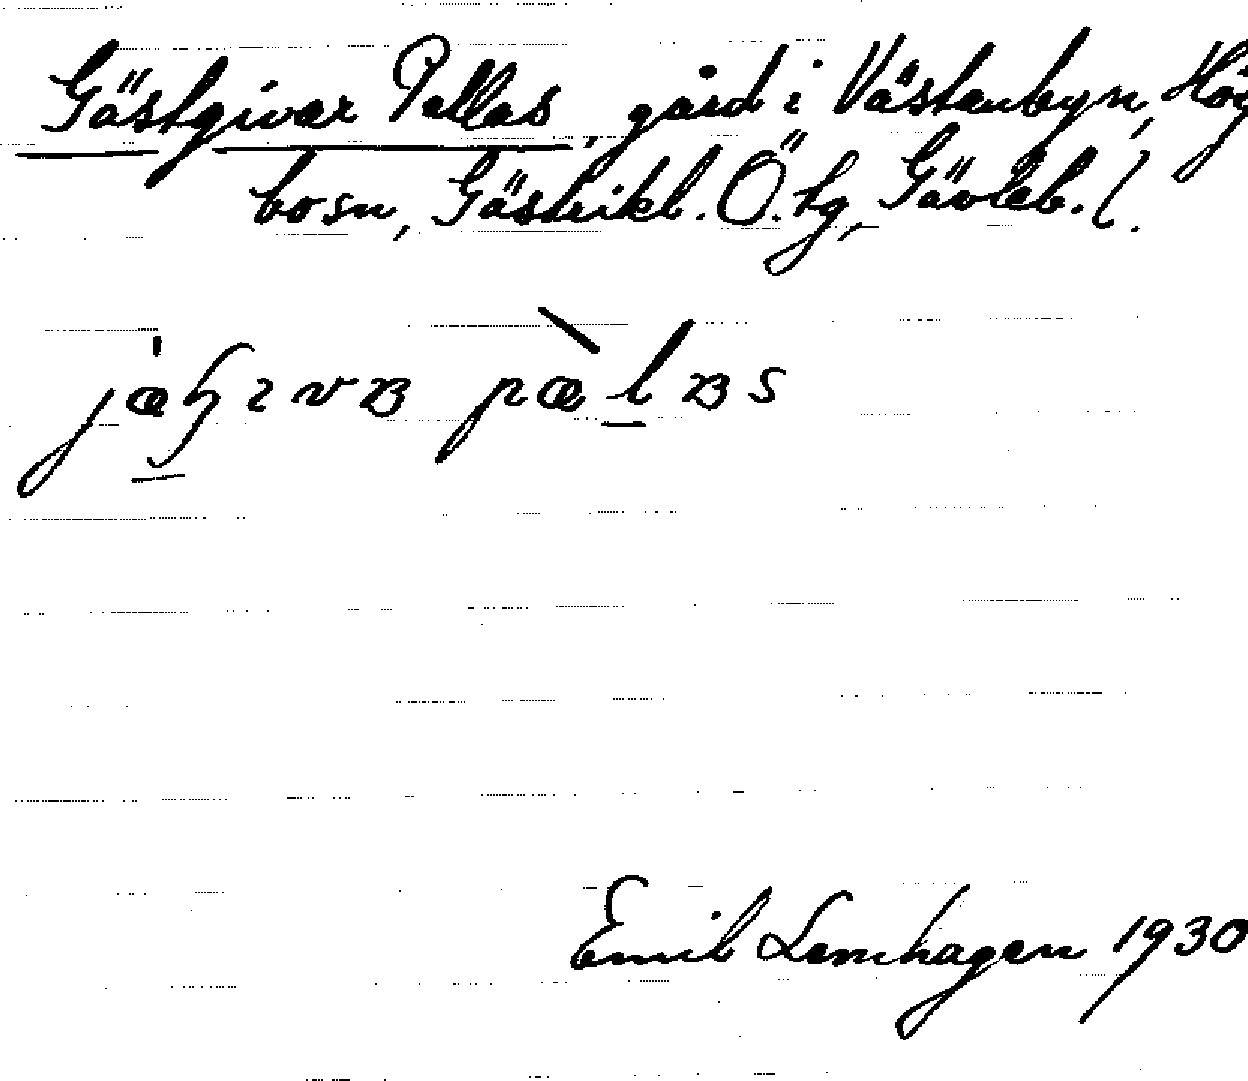 Gästgivar Pallas, gård i Västanbyn, Hög
bo sn, Gästrikl. Ö. tg, Gävleb. l.
Emil Lemhagen 1930